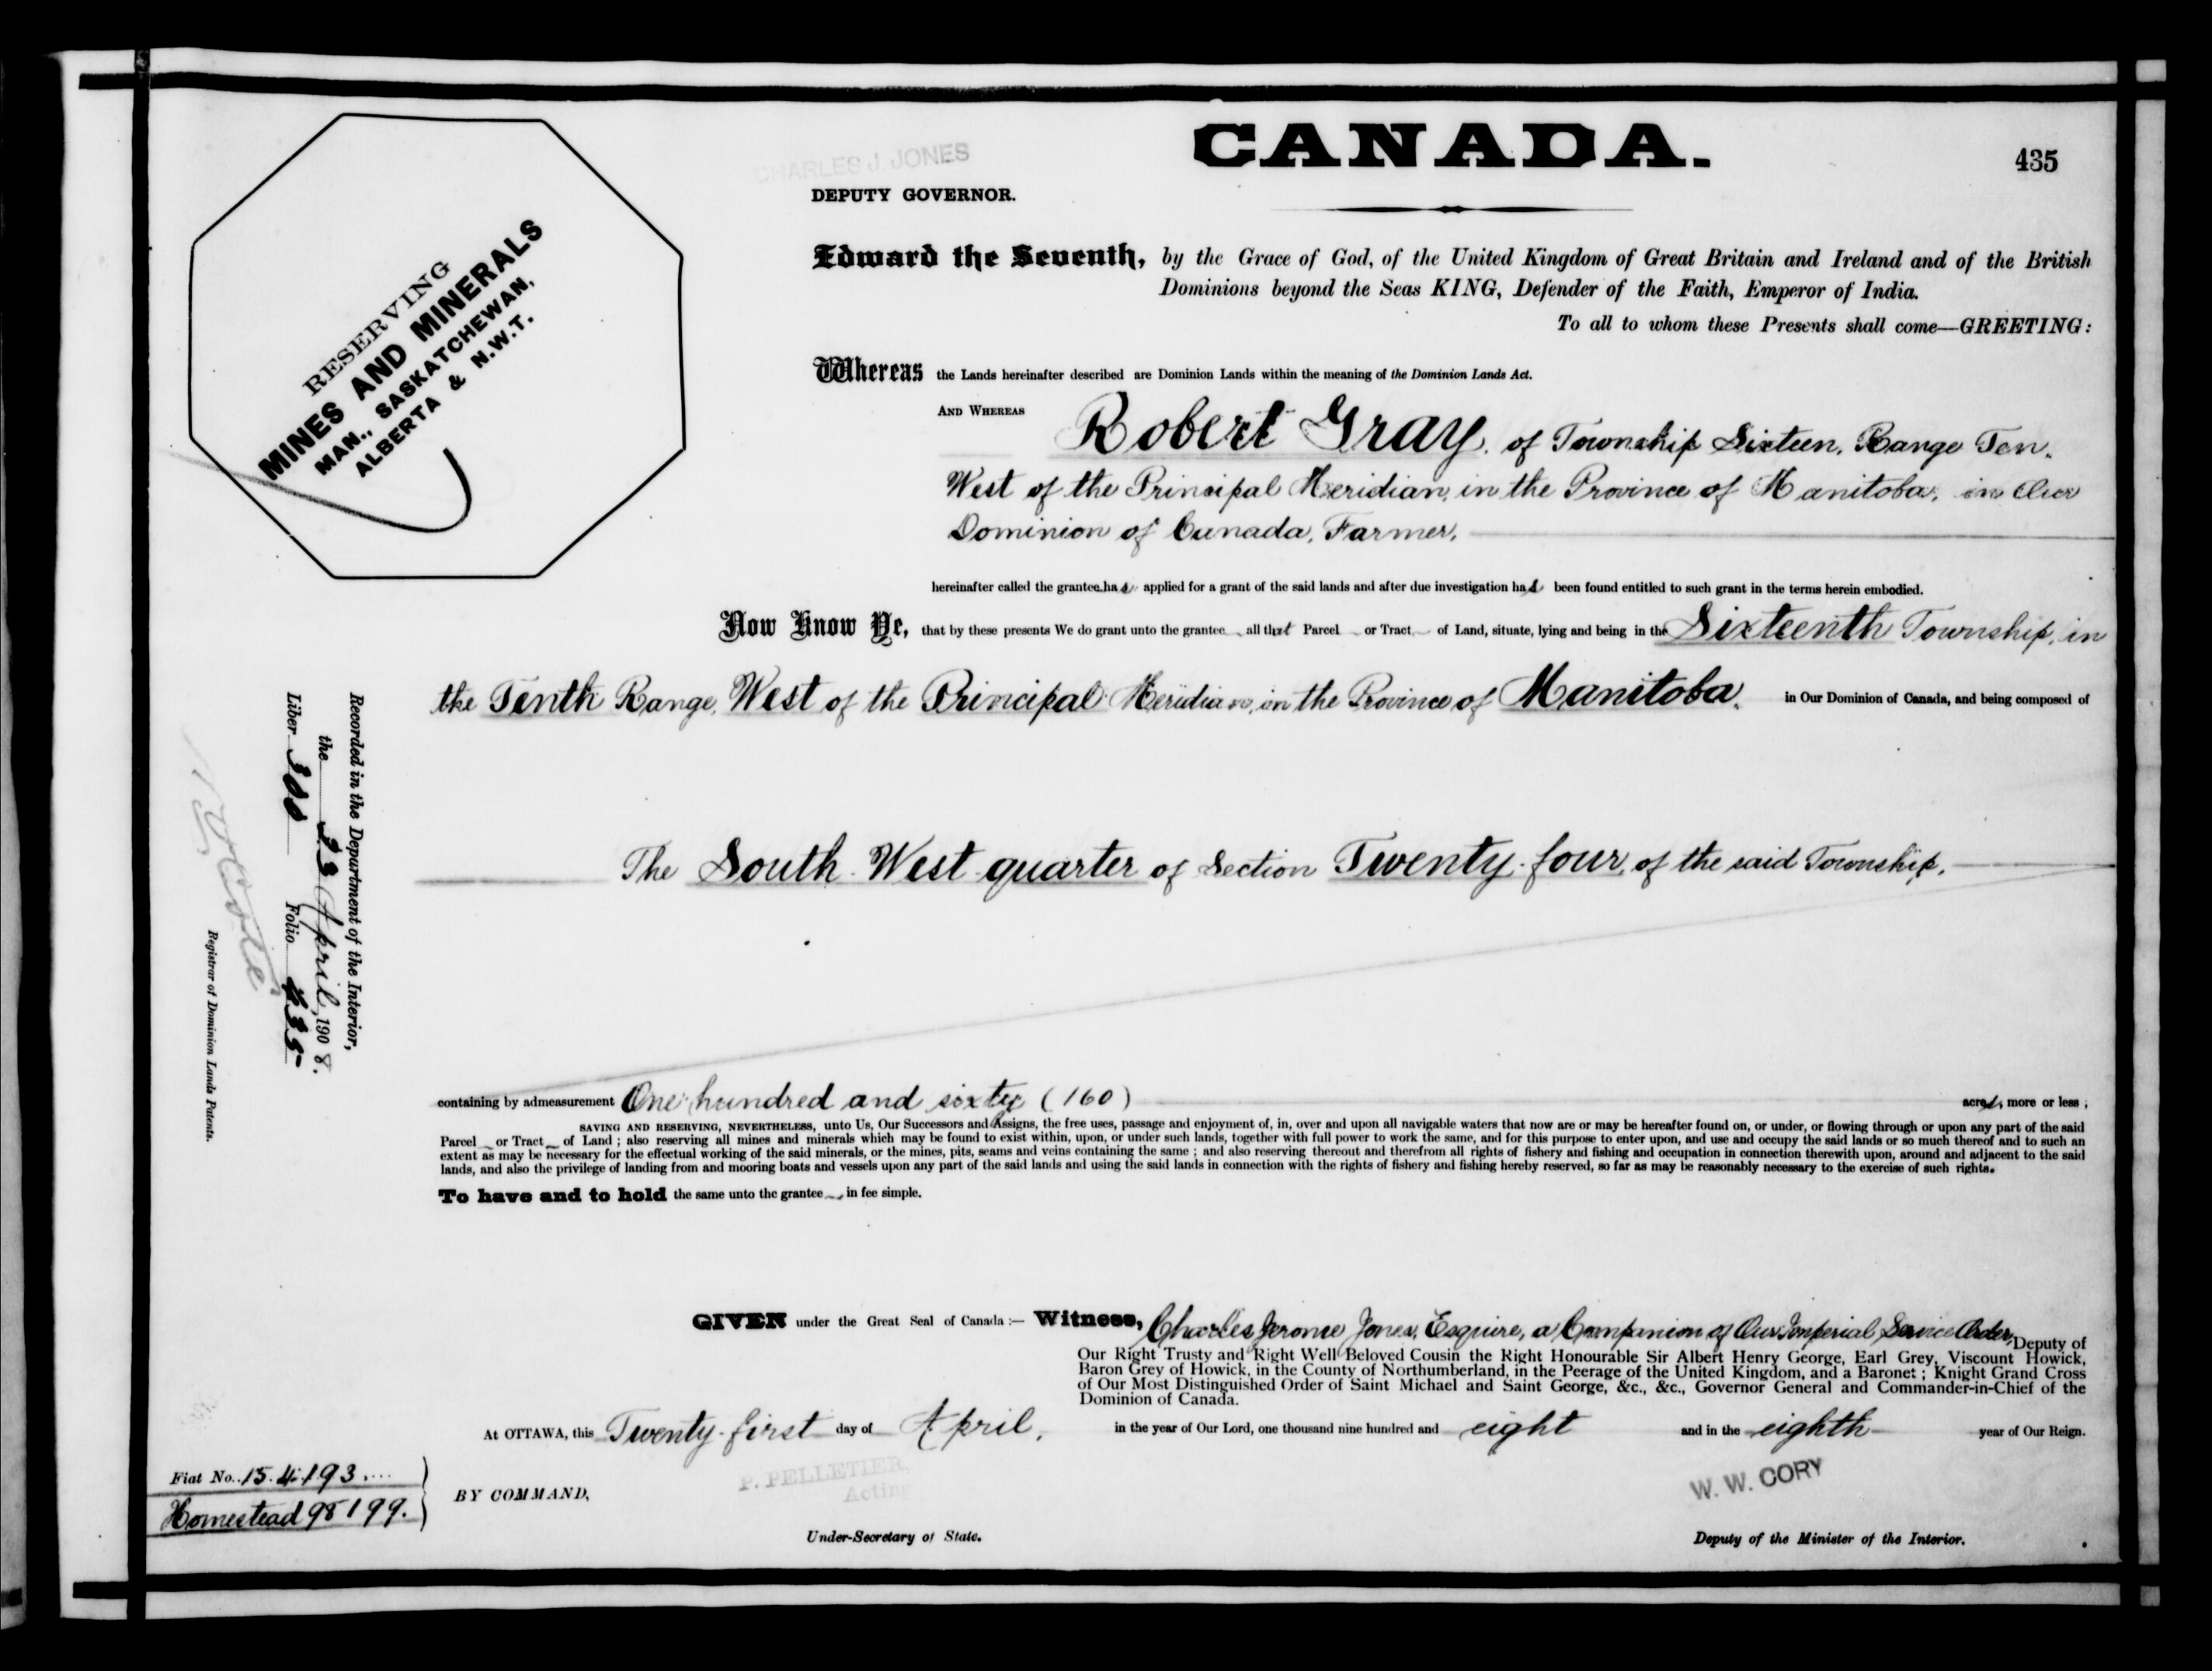 CANADA.
435
CHARLES J. JONES
DEPUTY GOVERNOR.
RESERVING
MINES AND MINERALS
MAN., SASKATCHEWAN,
ALBERTA & N.W.T.
Edward the Seventh, by the Grace of God, of the United Kingdom of Great Britain and Ireland and of the British
Dominions beyond the Seas KING, Defender of the Faith, Emperor of India.
To all to whom these Presents shall come—GREETING:
Whereas the Lands hereinafter described are Dominion Lands within the meaning of the Dominion Lands Act.
AND WHEREAS Robert Gray, of Township Sixteen, Range Ten,
West of the Principal Meridian, in the Province of Manitoba, in Our
Dominion of Canada, Farmer,
hereinafter called the grantee has applied for a grant of the said lands and after due investigation has been found entitled to such grant in the terms herein embodied.
Now Know Ye, that by these presents We do grant unto the grantee all that Parcel or Tract of Land, situate, lying and being in the Sixteenth Township, in
the Tenth Range, West of the Principal Meridian, in the Province of Manitoba, in Our Dominion of Canada, and being composed of
The South West quarter of Section Twenty-four, of the said Township,
containing by admeasurement One hundred and sixty (160) acres, more or less;
SAVING AND RESERVING, NEVERTHELESS, unto Us, Our Successors and Assigns, the free uses, passage and enjoyment of, in, over and upon all navigable waters that now are or may be hereafter found on, or under, or flowing through or upon any part of the said
Parcel or Tract of Land; also reserving all mines and minerals which may be found to exist within, upon, or under such lands, together with full power to work the same, and for this purpose to enter upon, and use and occupy the said lands or so much thereof and to such an
extent as may be necessary for the effectual working of the said minerals, or the mines, pits, seams and veins containing the same; and also reserving thereout and therefrom all rights of fishery and fishing and occupation in connection therewith upon, around and adjacent to the said
lands, and also the privilege of landing from and mooring boats and vessels upon any part of the said lands and using the said lands in connection with the rights of fishery and fishing hereby reserved, so far as may be reasonably necessary to the exercise of such rights.
To have and to hold the same unto the grantee in fee simple.
Recorded in the Department of the Interior,
the 23 April, 1908.
Liber 300 Folio 435
Registrar of Dominion Lands Patents.
GIVEN under the Great Seal of Canada:— Witness, Charles Jerome Jones, Esquire, a Companion of Our Imperial Service Order, Deputy of
Our Right Trusty and Right Well Beloved Cousin the Right Honourable Sir Albert Henry George, Earl Grey, Viscount Howick,
Baron Grey of Howick, in the County of Northumberland, in the Peerage of the United Kingdom, and a Baronet; Knight Grand Cross
of Our Most Distinguished Order of Saint Michael and Saint George, &c., &c., Governor General and Commander-in-Chief of the
Dominion of Canada.
At OTTAWA, this Twenty-first day of April, in the year of Our Lord, one thousand nine hundred and eight and in the eighth year of Our Reign.
Fiat No. 154193
Homestead 98199.
BY COMMAND,
P. PELLETIER,
Acting
Under-Secretary of State.
W. W. CORY
Deputy of the Minister of the Interior.